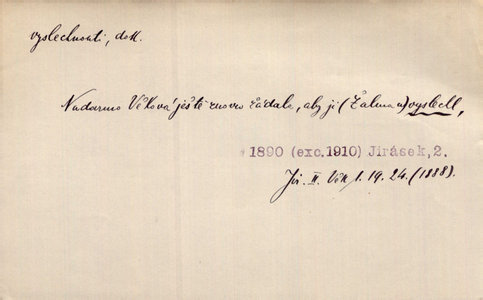 vyslechnouti, dok.
Nadarmo Věková ještě znovu žádala, aby ji (Žalman) vyslechl,
1890 (exc.1910) Jirásek,2.
Jir. II. Věk 1. 19. 24. (1888).